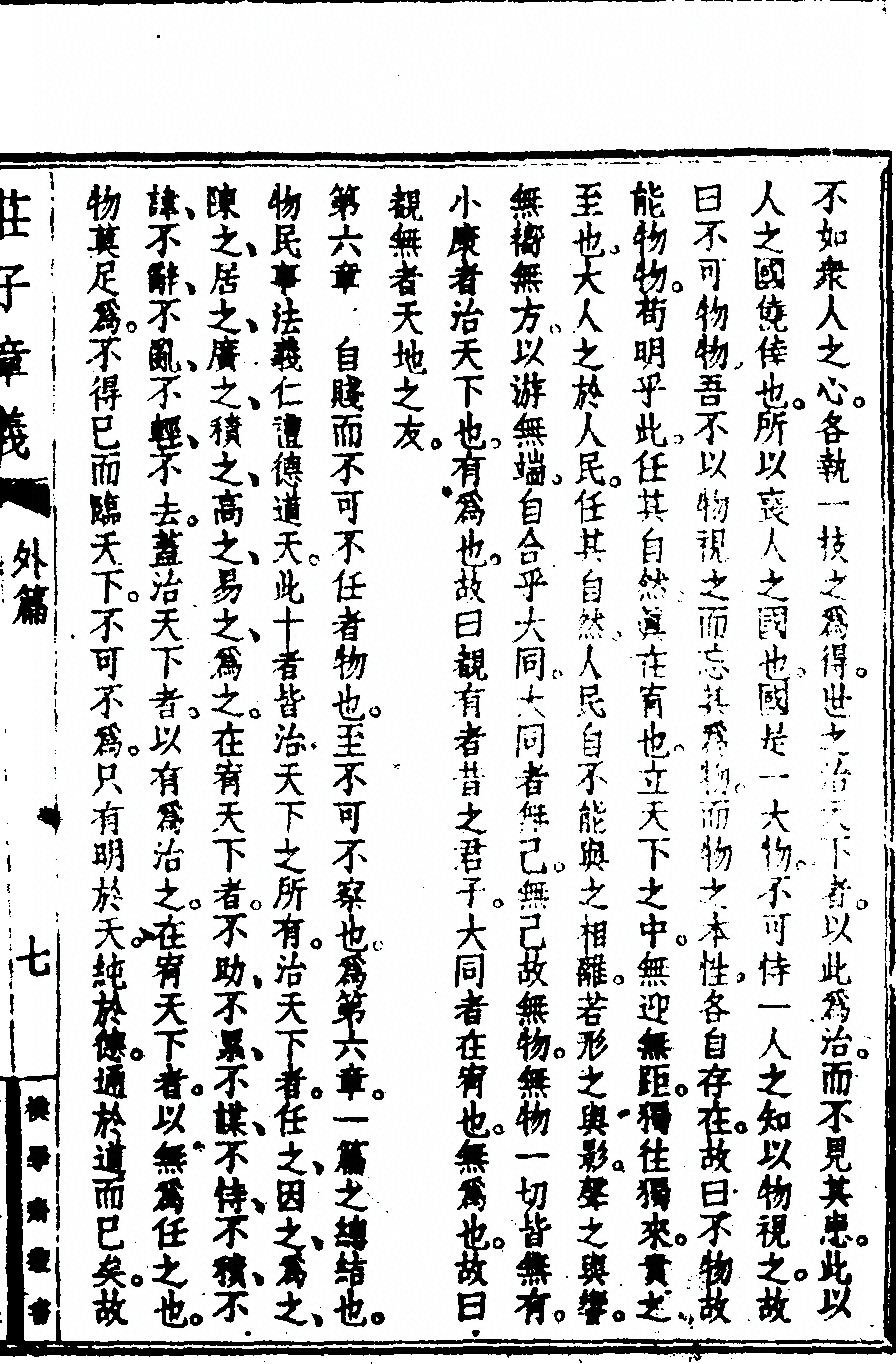 不如衆人之心。各執一技之爲得。世之治天下者。以此爲治。而不見其患。此以
人之國僥倖也。所以喪人之國也。國是一大物。不可恃一人之知以物視之。故
曰不可物物。吾不以物視之而忘其爲物。而物之本性。各自存在。故曰不物故
能物物。苟明乎此。任其自然。眞在宥也。立天下之中。無迎無距。獨往獨來。貴之
至也。大人之於人民。任其自然。人民自不能與之相離。若形之與影。聲之與響。
無嚮無方。以游無端。自合乎大同。大同者無己。無己故無物。無物一切皆無有。
小康者治天下也。有爲也。故曰覩有者昔之君子。大同者在宥也。無爲也。故曰
覩無者天地之友。
第六章　自賤而不可不任者物也。至不可不察也。爲第六章。一篇之總結也。
物民事法義仁禮德道天。此十者皆治天下之所有。治天下者。任之、因之、爲之、
陳之、居之、廣之、積之、高之、易之、爲之。在宥天下者。不助、不累、不謀、不恃、不積、不
諱、不辭、不亂、不輕、不去。蓋治天下者。以有爲治之。在宥天下者。以無爲任之也。
物莫足爲。不得已而臨天下。不可不爲。只有明於天。純於德。通於道而已矣。故
莊子章義
外篇
七
樸學齋叢書